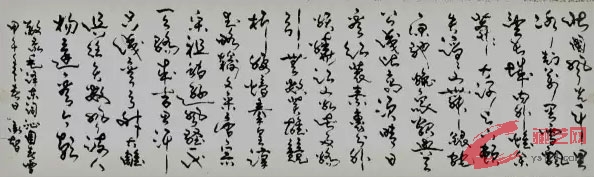 北国风光千里
冰封万里雪飘
望长城内外惟余
莽莽大河上下顿
失滔滔山舞银蛇
原驰蜡象欲与天
公试比高须晴日
看红装素裹分外
妖娆江山如此多娇
引无数英雄竞
折腰惜秦皇汉
武略输文采唐宗
宋祖稍逊风骚一代
天骄成吉思汗
只识弯弓射大雕
俱往矣数风流人
物还看今朝
敬录毛泽东词沁园春雪
甲午年春日